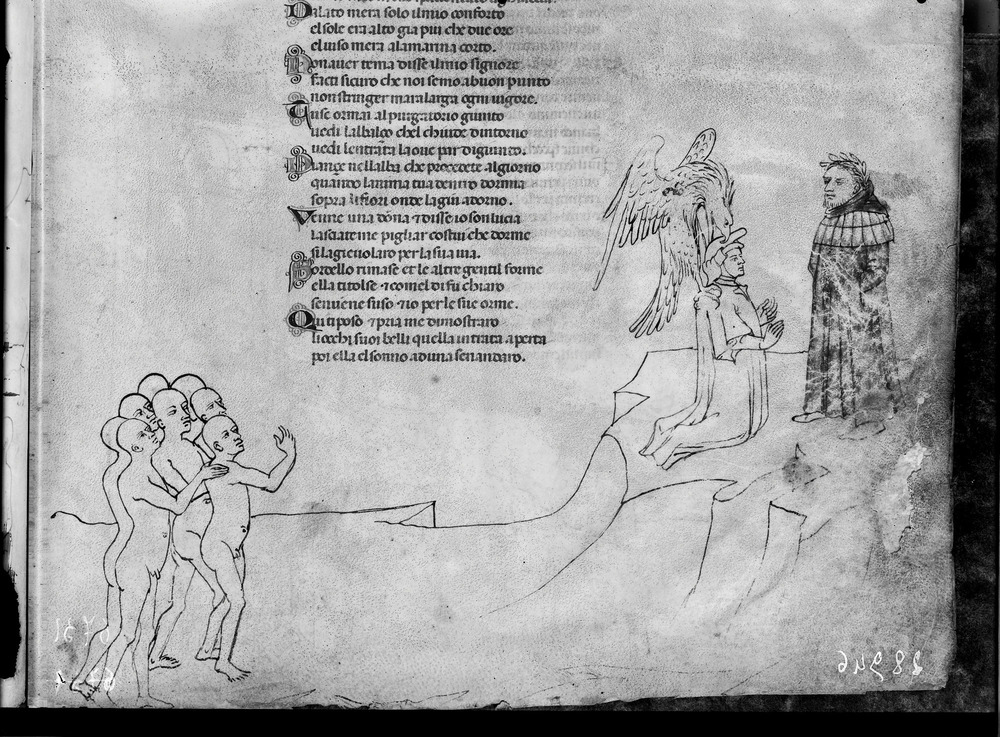 Dalato mera solo ilmio conforto
elsole era alto gia piu che due ore
eluiso mera alamarina corto.
Honauer tema disse ilmio signore
facti sicuro che noi semo abuon punto
non stringer mara larga ogni uigore.
Tuse ormai al purgatorio giunto
uedi lalbalço chel chiude dintorno
uedi lentrata la oue par digiunto.
Diançe nellalba che procedete algiorno
quando lanima tua dentro dormia
sopra lifiori onde lagiu adorno.
Venne una dona ⁊ disse io son lucia
lasciateme pigliar costui che dorme
si lageuolaro per la sua uia.
Sordello rimase et le altre gentil forme
ella titolse ⁊ comel di fu chiaro
senuene suso ⁊ io per le sue orme.
Qui tiposo ⁊ pria me dimostraro
liocchi suoi belli quella intrata aperta
poi ella elsonno aduna senandaro.
28946